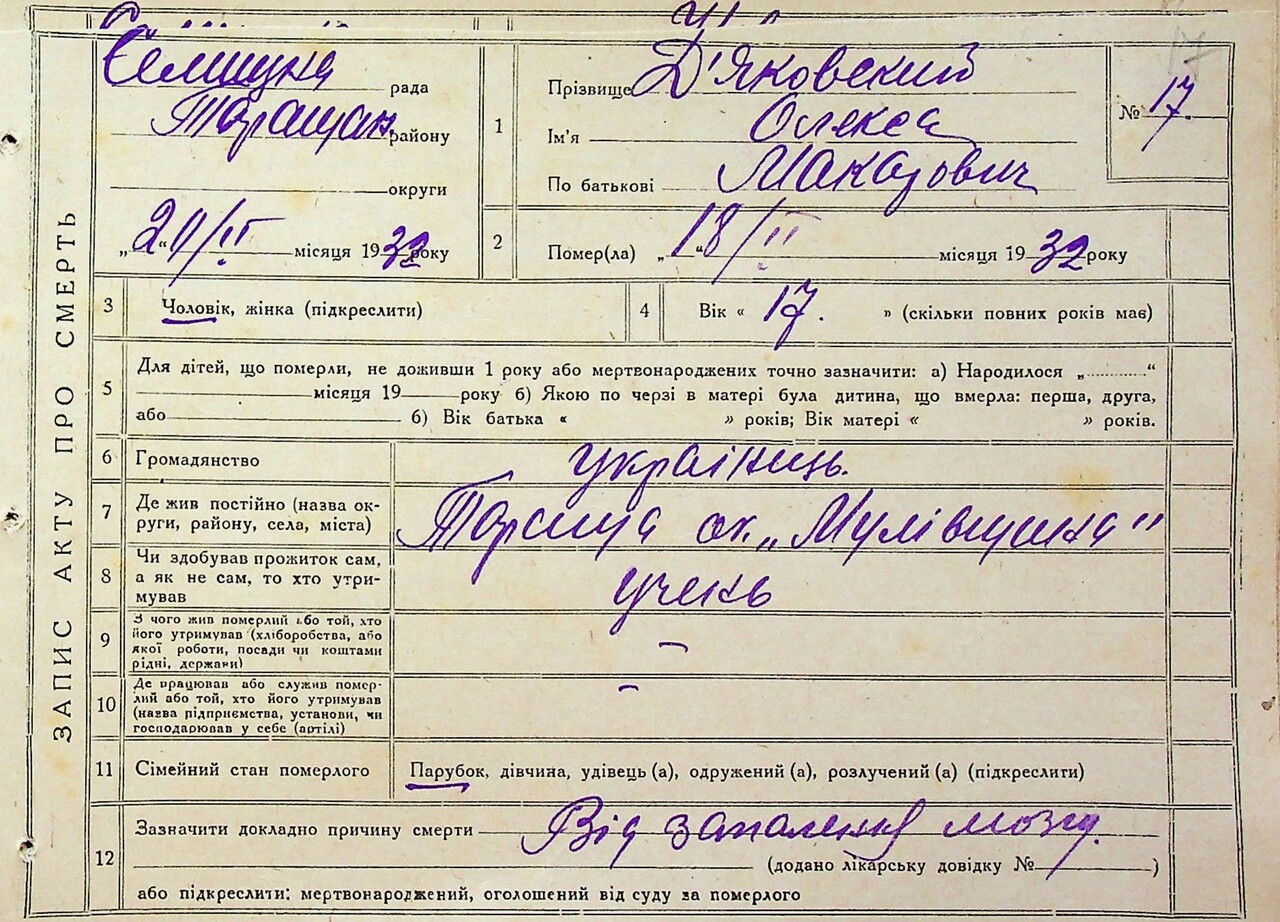 ЗАПИС АКТУ ПРО СМЕРТЬ
рада
Таращан. району
округи
„20“/II місяця 1932 року
1
Прізвище Д'Яковский
Ім'я Олекса
По батькові Макарович
№ 17.
17
2
Помер(ла) „18“/II місяця 1932 року
3 Чоловік, жінка (підкреслити)
4 Вік « 17. » (скільки повних років має)
5 Для дітей, що померли, не доживши 1 року або мертвонароджених точно зазначити: а) Народилося „..........“
місяця 19 року б) Якою по черзі в матері була дитина, що вмерла: перша, друга,
або б) Вік батька « » років; Вік матері « » років.
6 Громадянство українець.
7 Де жив постійно (назва ок-
руги, району, села, міста)
Тараща ок. „Мулівщина"
8 Чи здобував прожиток сам,
а як не сам, то хто утри-
мував
учень
9 З чого жив померлий або той, хто
його утримував (хліборобства, або
якої роботи, посади чи коштами
рідні, держави)
–
10 Де працював або служив помер-
лий або той, хто його утримував
(назва підприємства, установи, чи
господарював у себе (артілі)
–
11 Сімейний стан померлого Парубок, дівчина, удівець (а), одружений (а), розлучений (а) (підкреслити)
12 Зазначити докладно причину смерти Від запалення мозгу.
(додано лікарську довідку № )
або підкреслити: мертвонароджений, оголошений від суду за померлого